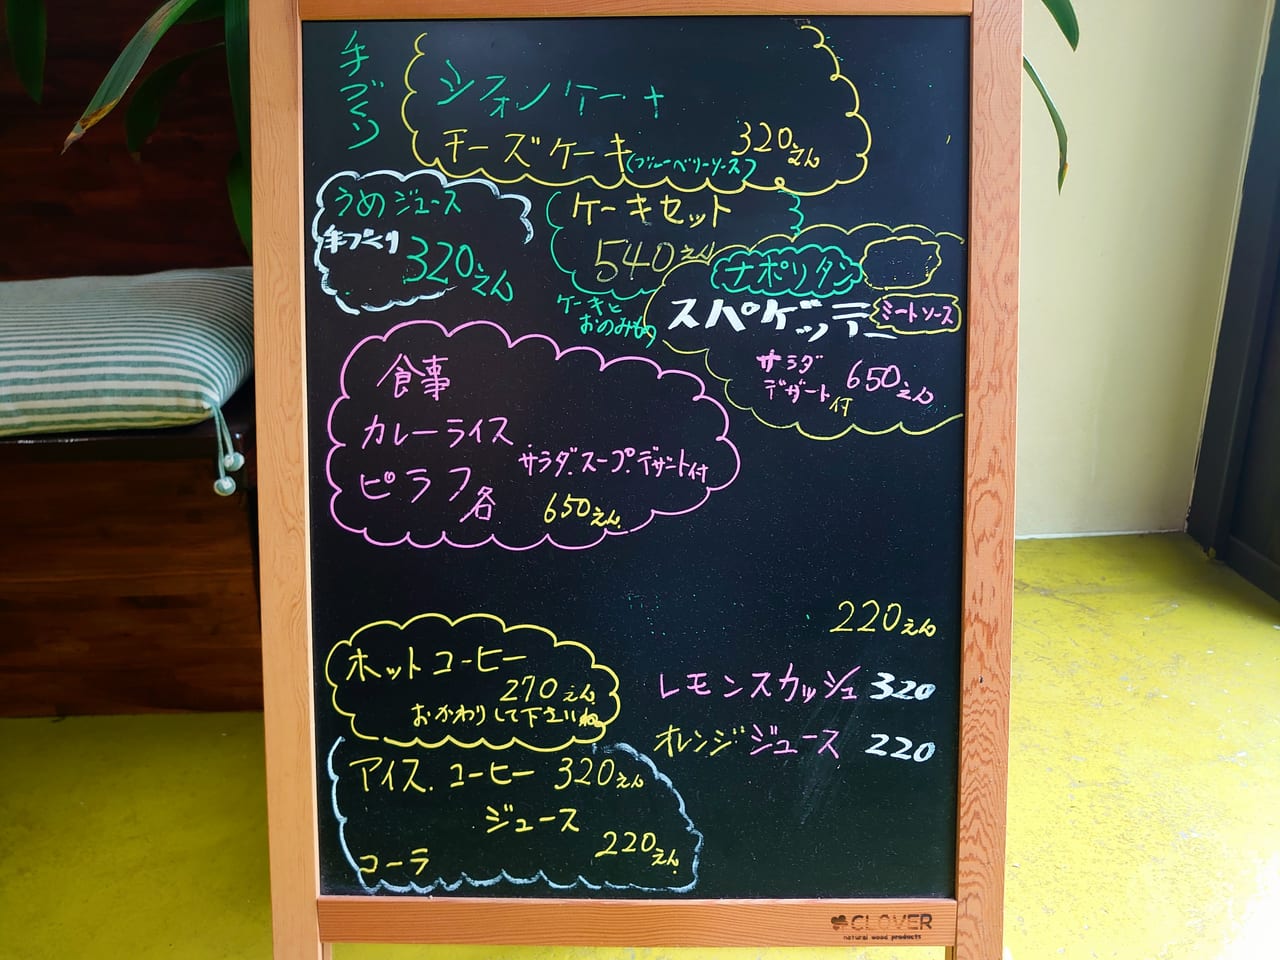 手づくり
シフォンケーキ
チーズケーキ(ブルーベリーソース) 320えん
うめジュース
手づくり
320えん
ケーキセット
540えん
ケーキと
おのみもの
ナポリタン
スパゲッティー
ミートソース
サラダ
デザート付
650えん
食事
カレーライス
サラダ.スープ.デザート付
ピラフ各
650えん
220えん
ホットコーヒー
270えん
おかわりして下さいね
レモンスカッシュ 320
オレンジジュース 220
アイス.コーヒー 320えん
ジュース
220えん
コーラ
CLOVER
natural wood products